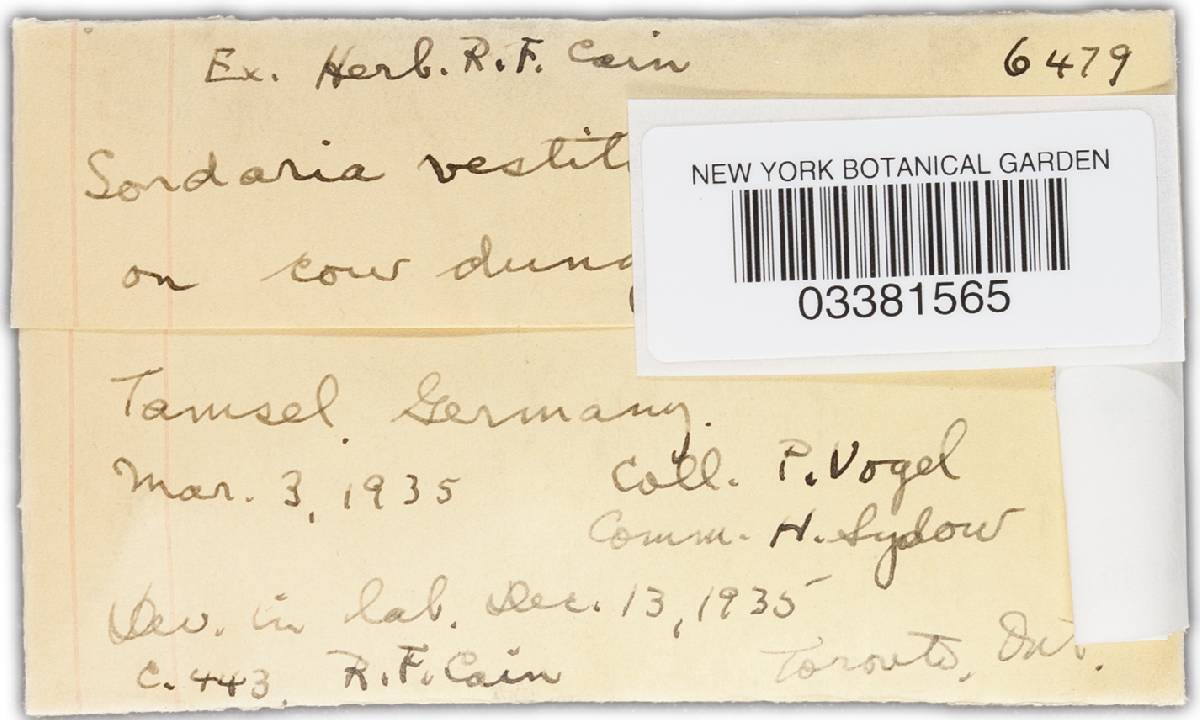 Ex. Herb. R.F. Cain 6479
Sordaria vestit
on cow dung
NEW YORK BOTANICAL GARDEN
03381565
Tamsel, Germany.
Mar. 3, 1935 Coll. P. Vogel
Comm. H. Sydow
Dev. in lab. Dec. 13, 1935
C. 443. R.F. Cain Toronto, Ont.